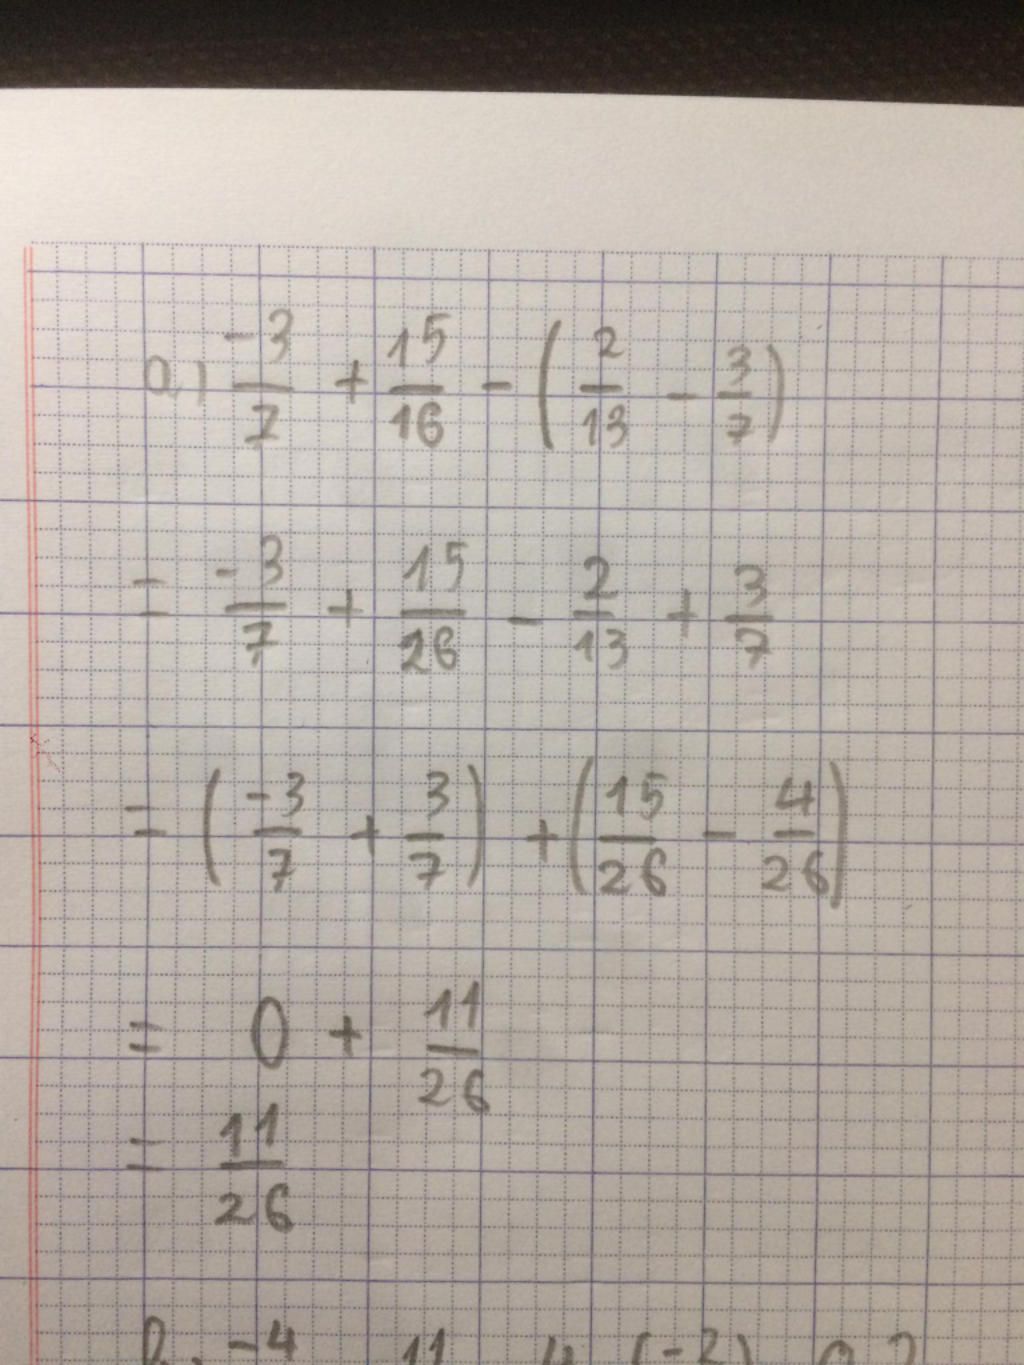 a) -3/7 + 15/16 - (2/13 - 3/7)
= -3/7 + 15/26 - 2/13 + 3/7
= (-3/7 + 3/7) + (15/26 - 4/26)
= 0 + 11/26
= 11/26
-4 11 4 (-2)